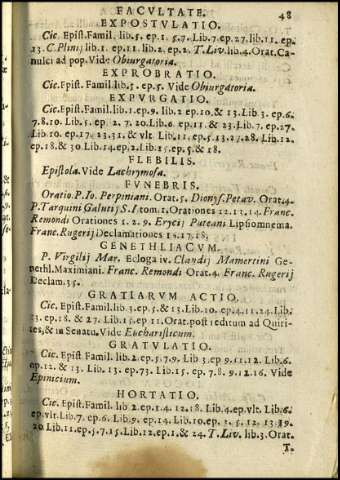 FACULTATE. 48
EXPOSTVLATIO.
Cic. Epist. Famil. lib.5. ep.1. 5.7. Lib.7. ep.27. lib.11. ep.
13. C. Plinij lib.1. ep.11. lib.2. ep.2. T. Liv. lib.4. Orat. Ca-
nulei ad pop. Vide Obiurgatoria.
EXPROBRATIO.
Cic. Epist. Famil. lib.5. ep.5. Vide Obiurgatoria.
EXPVRGATIO.
Cic. Epist. Famil. lib.1. ep.9. lib.2 ep.10. & 13. Lib 3. ep.6.
7.8.10. Lib.5. ep. 2. 7. 20. Lib.6 ep.11. & 23. Lib.7. ep.27.
Lib.10. ep.17. 23.31. & vlt. Lib.11. ep.5.13.27.28. Lib.12.
ep.18. & 30 Lib.14. ep.2. Lib.15. ep.5. & 18.
FLEBILIS.
Epistola. Vide Lachrymosa.
FVNEBRIS.
Oratio P. Io. Perpiniani. Orat.5. Dionys. Petav. Orat.4.
P. Tarquini Galutij S. I. tom.1. Orationes 12.13.14. Franc.
Remondi Orationes 1. 2. 9. Erycij Puteani Lipsiomnema.
Franc. Rugerij Declamationes 15.17.18.
GENETHLIACVM.
P. Virgilij Mar. Ecloga iv. Claudij Mamertini Ge-
nethl. Maximiani. Franc. Remondi Orat.4. Franc. Rugerij
Declam.35.
GRATIARVM ACTIO.
Cic. Epist. Famil. lib 3. ep.5. & 13. Lib.10. ep.4.11.24. Lib.
23. ep.18. & 27. Lib.15. ep 11. Orat. post reditum ad Quiri-
tes, & in Senatu. Vide Eucharisticum.
GRATVLATIO.
Cic. Epist. Famil. lib.2. ep.5.7.9. Lib 3. ep 9.11.12. Lib.6.
ep.12. & 13. Lib. 13. ep.73. Lib.15. ep. 7.8. 9.12.16. Vide
Epinicium.
HORTATIO.
Cic. Epist. Famil. lib 2. ep.1.4. 12.18. Lib.4. ep.vlt. Lib.6.
ep.vlt. Lib.7. ep.6. Lib.9. ep.14. Lib.10. ep.3. 5. 12. 13.19.
20. Lib.11. ep.5.7.15. Lib.12. ep.1. & 24. T. Liv. lib 3. Orat.
T.